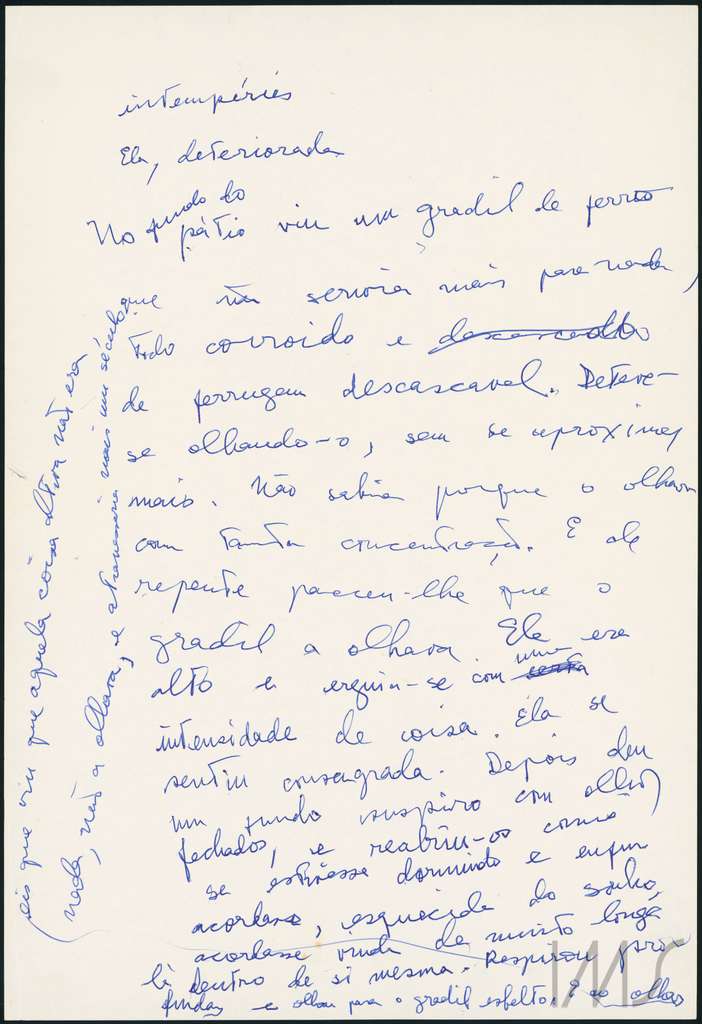 intempéries
Ela, deteriorada
No fundo do
pátio viu um gradil de ferro
que não serviria mais para nada,
todo corroído e descascado
de ferrugem descascavel. Deteve-
se olhando-o, sem se aproximar
mais. Não sabia porque o olhava
com tanta concentração. E de
repente pareceu-lhe que o
gradil a olhava. Ele era
alto e erguia-se com uma
intensidade de coisa. Ela se
sentiu consagrada. Depois deu
um fundo suspiro com olhos
fechados, e reabriu-os como
se estivesse dormindo e enfim
acordasse, esquecida do sonho,
acordasse vinda de muito longe
lá dentro de si mesma. Respirou pro-
funda e olhou para o gradil esbelto. E ao olhar
eis que viu que aquela coisa altiva não era
nada, não a olhava, e atravessaria mais um século.
IMS